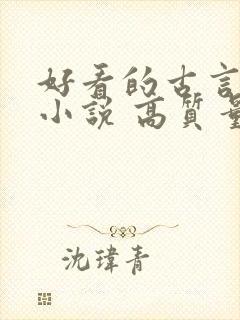 好看的古言
小說 高質量
沈瑋青